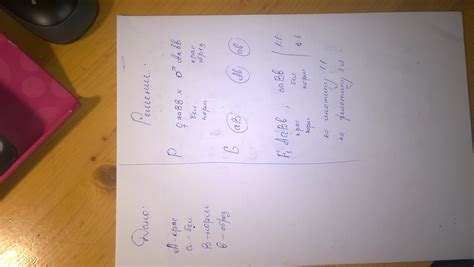 Дано:
А - крас
а - бел
В - норм
в - обрез
Решение:
Р ♀ ааВВ × ♂ Аавв
бел крас
норм обрез
G аВ Ав ав
F₁: АаВв ; ааВв 1:1
крас бел 1:1
норм норм
по генотипу 1:1
по фенотипу 1:1